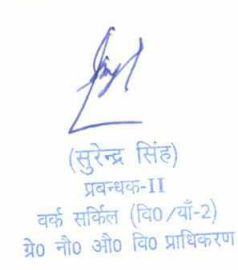 (सुरेन्द्र सिंह)
प्रबन्धक-II
वर्क सर्किल (वि0/याँ-2)
ग्रे0 नौ0 औ0 वि0 प्राधिकरण